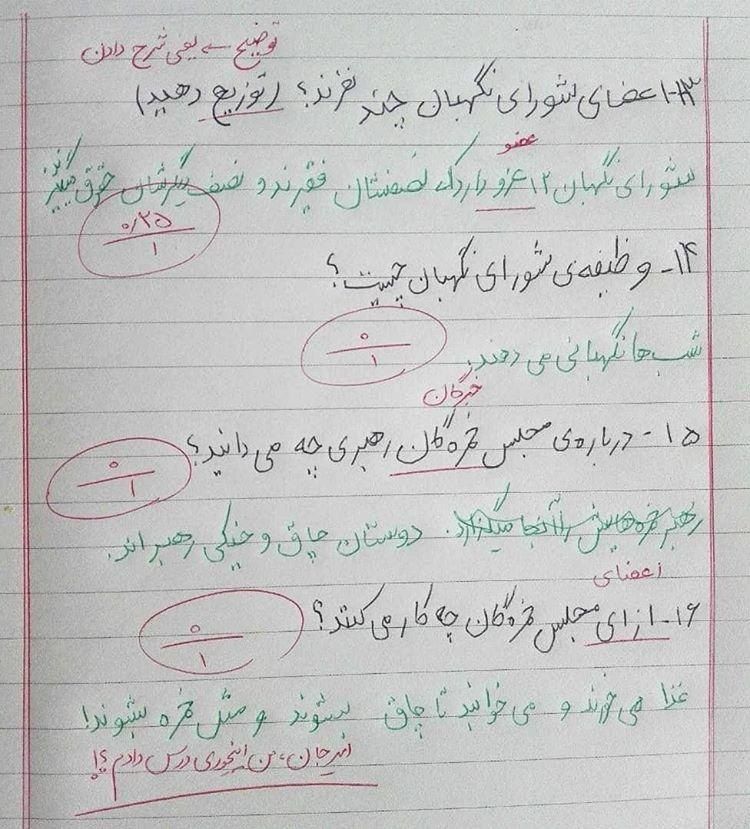 توضیح ← یعنی شرح دادن
۱۳- اعضای شورای نگهبان چند نفرند؟ (توزیع دهید)
عضو
شورای نگهبان ۱۲ عزو دارد که نصفشان فقیرند و نصف دیگرشان حقوق میگیرند
۰/۲۵
۱
۱۴- وظیفه‌ی شورای نگهبان چیست؟
شب‌ها نگهبانی می دهند.
۰
۱
خبرگان
۱۵- درباره‌ی مجلس خمره‌گان رهبری چه می دانید؟
۰
۱
رهبر خمره‌هایش را آنجا میگذارد. دوستان چاق و خیکی رهبر اند.
اعضای
۱۶- ازای مجلس خمره‌گان چه کار می کنند؟
۰
۱
غذا می خورند و می خوابند تا چاق بشوند و مثل خمره بشوند!
امیرجان، من اینجوری درس دادم؟!